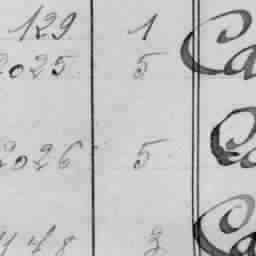 129 1
2025 5 Ca
2026 5 Ca
3 Ca